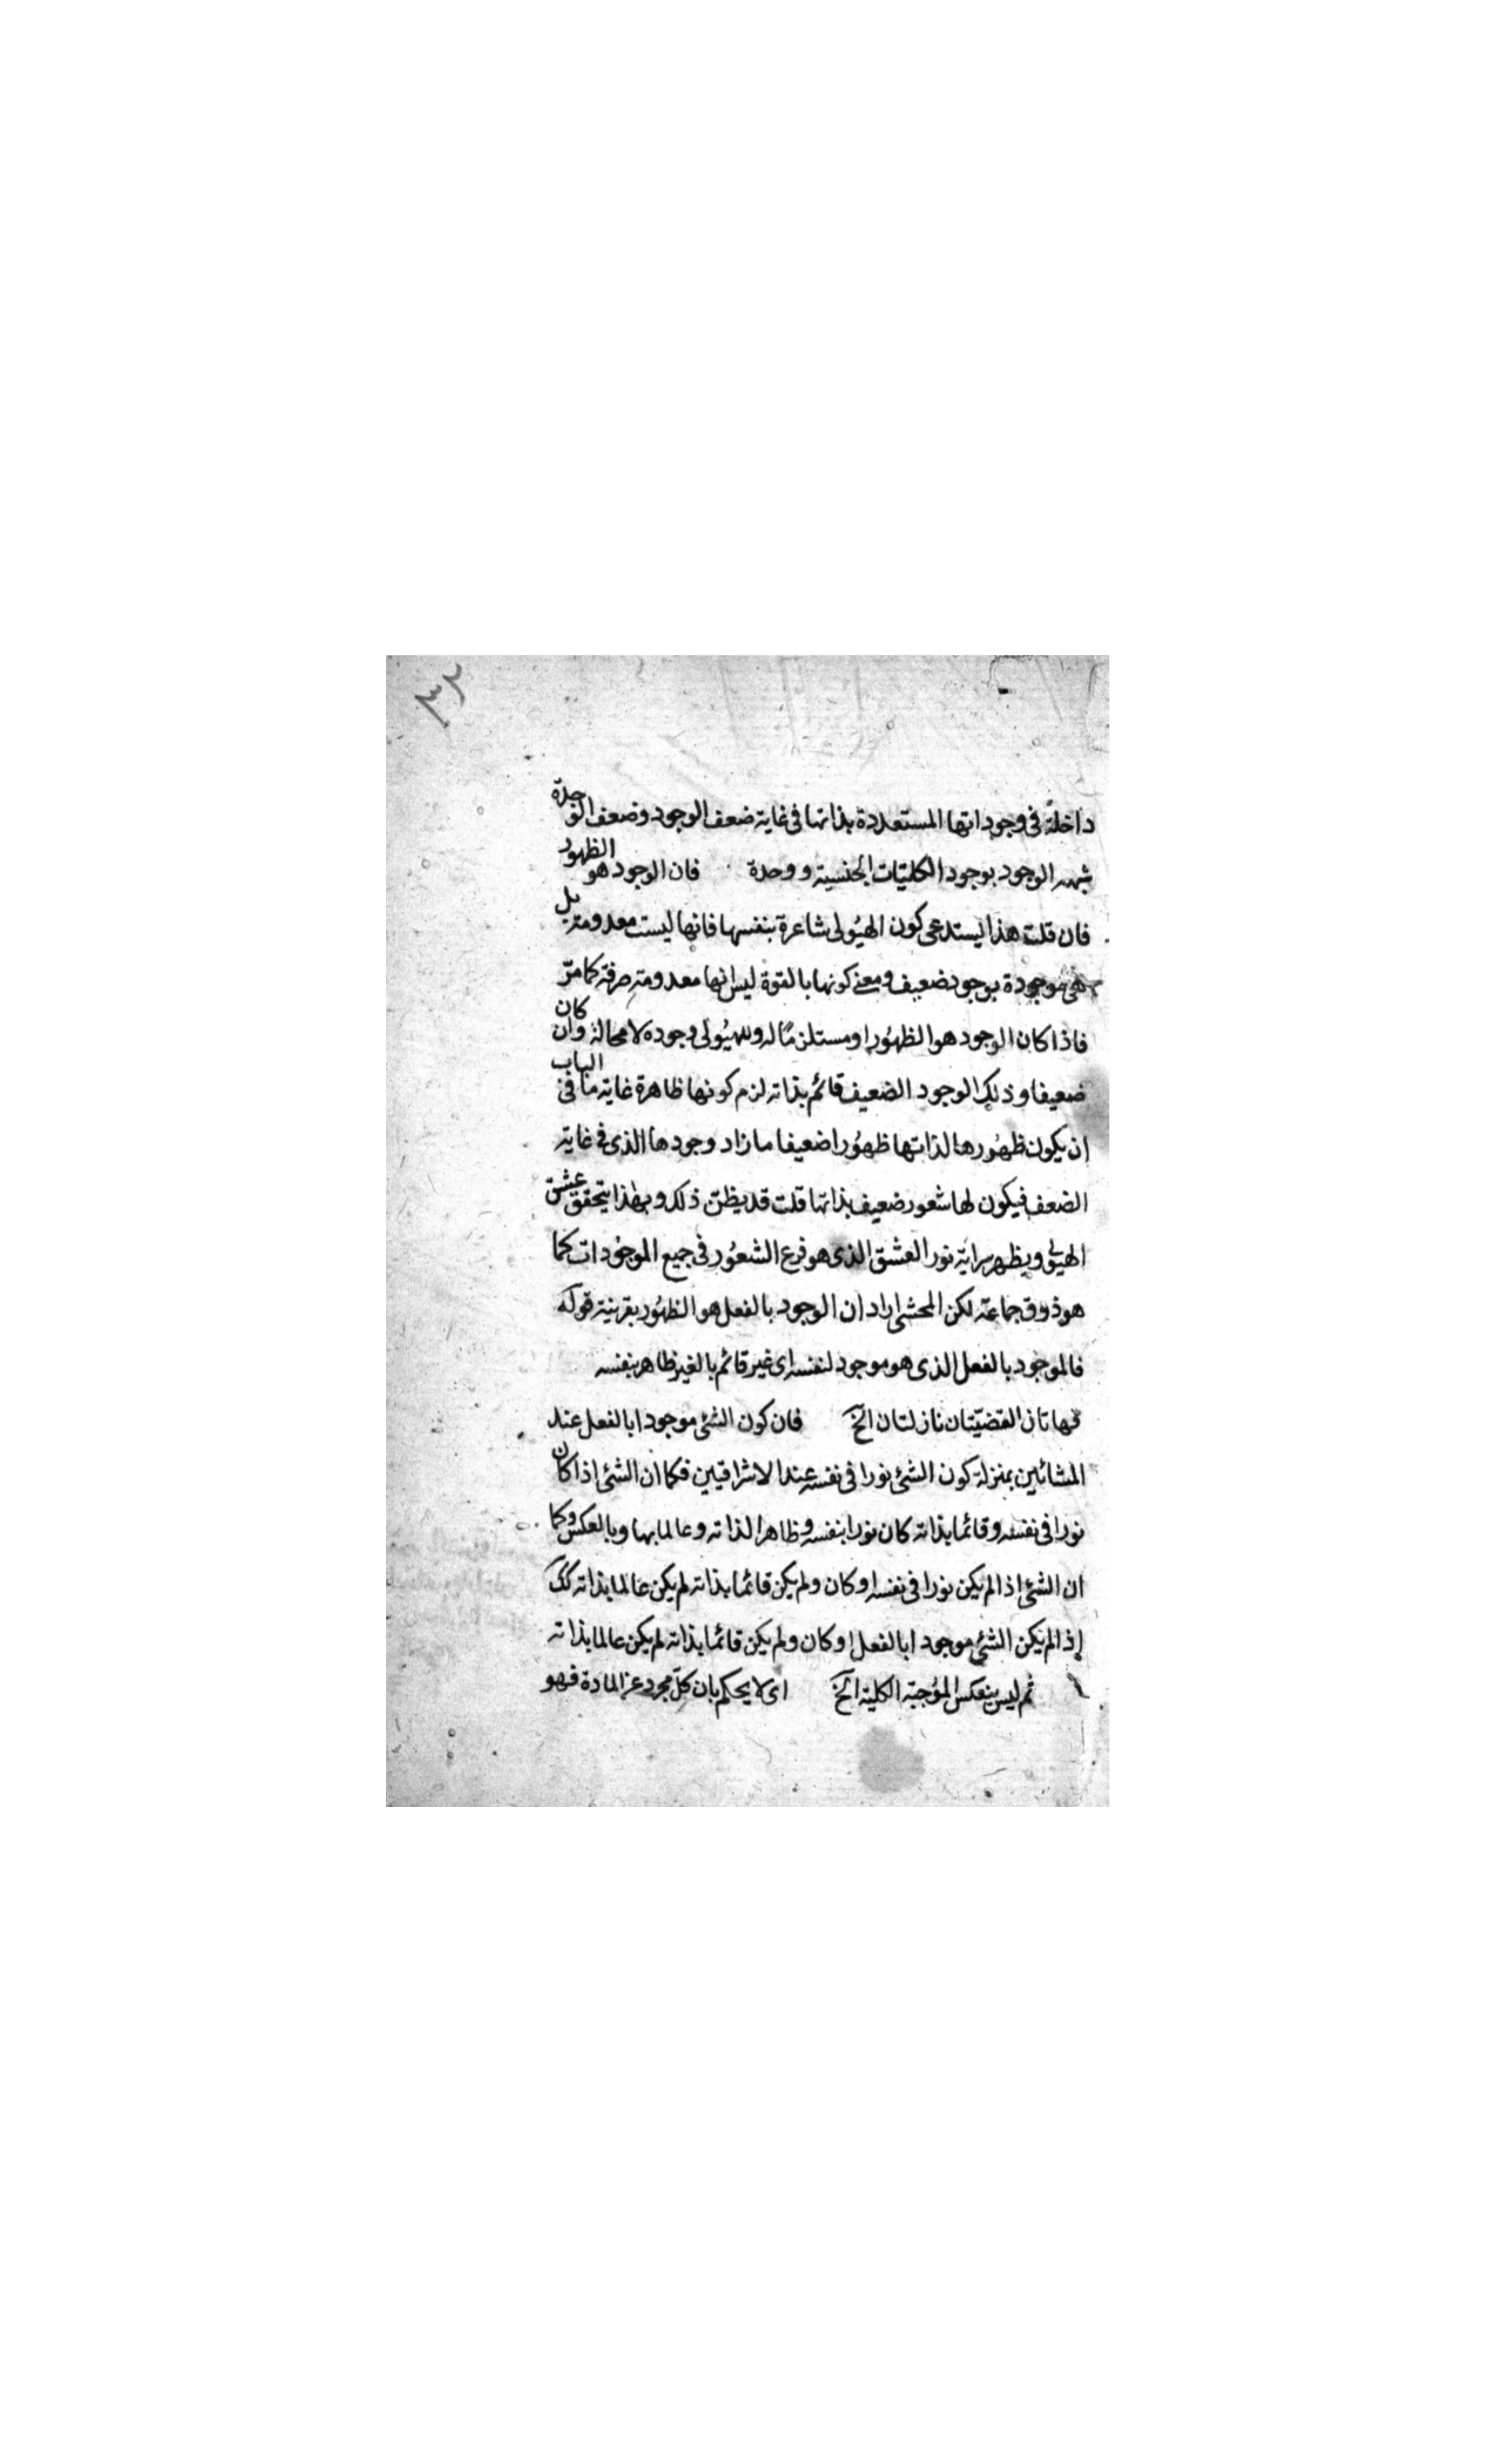 ٣٢
داخلة فى وجوداتها المستعددة بذاتها فى غاية ضعف الوجود وضعف الوحدة
شبهه الوجود بوجود الكليّات الجنسية ووحدة فان الوجود هو الظهور
فان قلت هذا يستدعى كون الهيُولى شاعرة بنفسها فانها ليست معدومة بل
هى موجودة بوجود ضعيف ومعنى كونها بالقوة ليس انها معدومة صرفة كما مرّ
فاذا كان الوجود هو الظهُور او مستلزمًا له وللهيُولى وجود لا محالة وان كان
ضعيفا وذلك الوجود الضعيف قائم بذاته لزم كونها ظاهرة غاية ما فى الباب
ان يكون ظهُورها لذاتها ظهُورا ضعيفا ما زاد وجودها الذى فى غاية
الضعف فيكون لها شعور ضعيف بذاتها قلت قد يظنّ ذلك وبهذا يتحقق عشق
الهيولى ويظهر سراية نور العشق الذى هو فرع الشعُور فى جميع الموجُودات كما
هو ذوق جماعة لكن المحشى اراد ان الوجود بالفعل هو الظهُور بقرينة قوله
فالموجود بالفعل الذى هو موجود لنفسه اى غير قائم بالغير ظاهر بنفسه
فهاتان القضيّتان نازلتان الخ فان كون الشئ موجودا بالفعل عند
المشائين بمنزلة كون الشئ نورا فى نفسه عند الاشراقيين فكما ان الشئ اذا كان
نورا فى نفسه وقائما بذاته كان نورا بنفسه وظاهرا لذاته وعالما بها وبالعكس وكما
ان الشئ اذا لم يكن نورا فى نفسه او كان ولم يكن قائما بذاته لم يكن عالما بذاته كك
إذا لم يكن الشئ موجودا بالفعل او كان ولم يكن قائما بذاته لم يكن عالما بذاته
ثم ليس ينعكس المُوجبة الكلية الخ اى لا يحكم بان كلّ مجرد عن المادة فهو